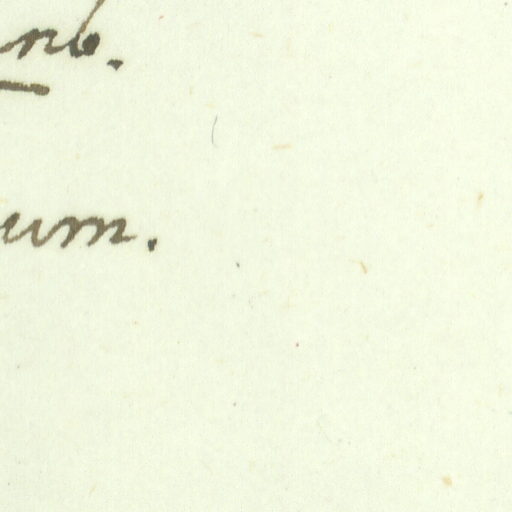 nb.
um.